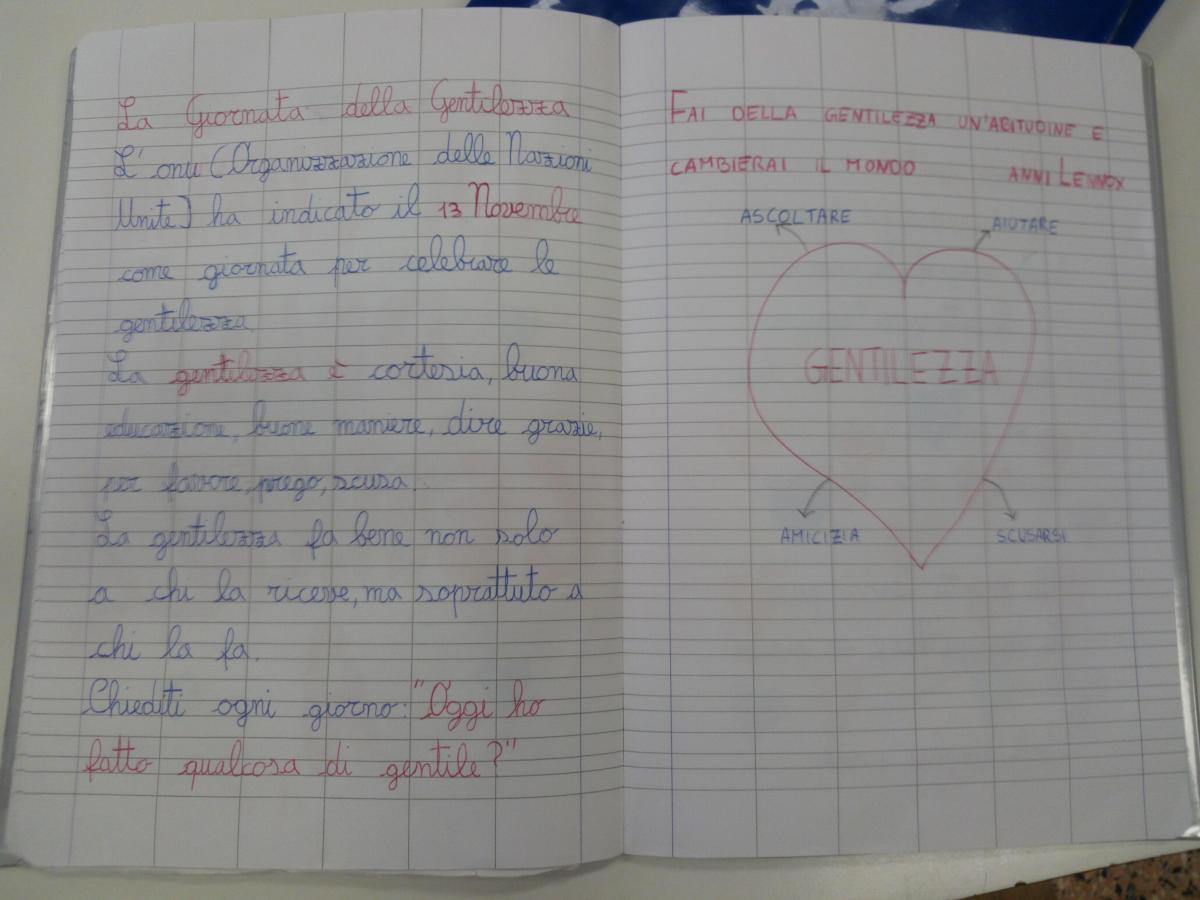 La Giornata della Gentilezza
L'onu (Organizzazione delle Nazioni
Unite) ha indicato il 13 Novembre
come giornata per celebrare le
gentilezza
La gentilezza è cortesia, buona
educazione, buone maniere, dire grazie,
per favore, prego, scusa.
La gentilezza fa bene non solo
a chi la riceve, ma soprattuto a
chi la fa.
Chiediti ogni giorno: "Oggi ho
fatto qualcosa di gentile?"
FAI DELLA GENTILEZZA UN'ABITUDINE E
CAMBIERAI IL MONDO ANNI LENNOX
ASCOLTARE AIUTARE
GENTILEZZA
AMICIZIA SCUSARSI